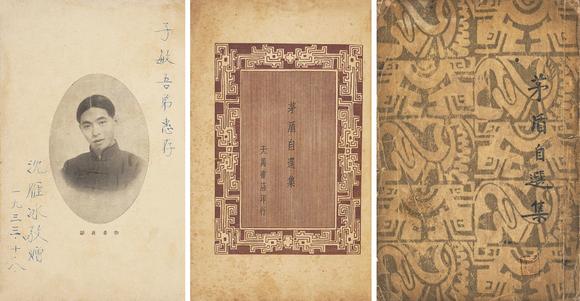 子敏吾弟惠存
沈雁冰敬贈
一九三三·十·八
茅盾自選集
天馬書店印行
茅盾自選集